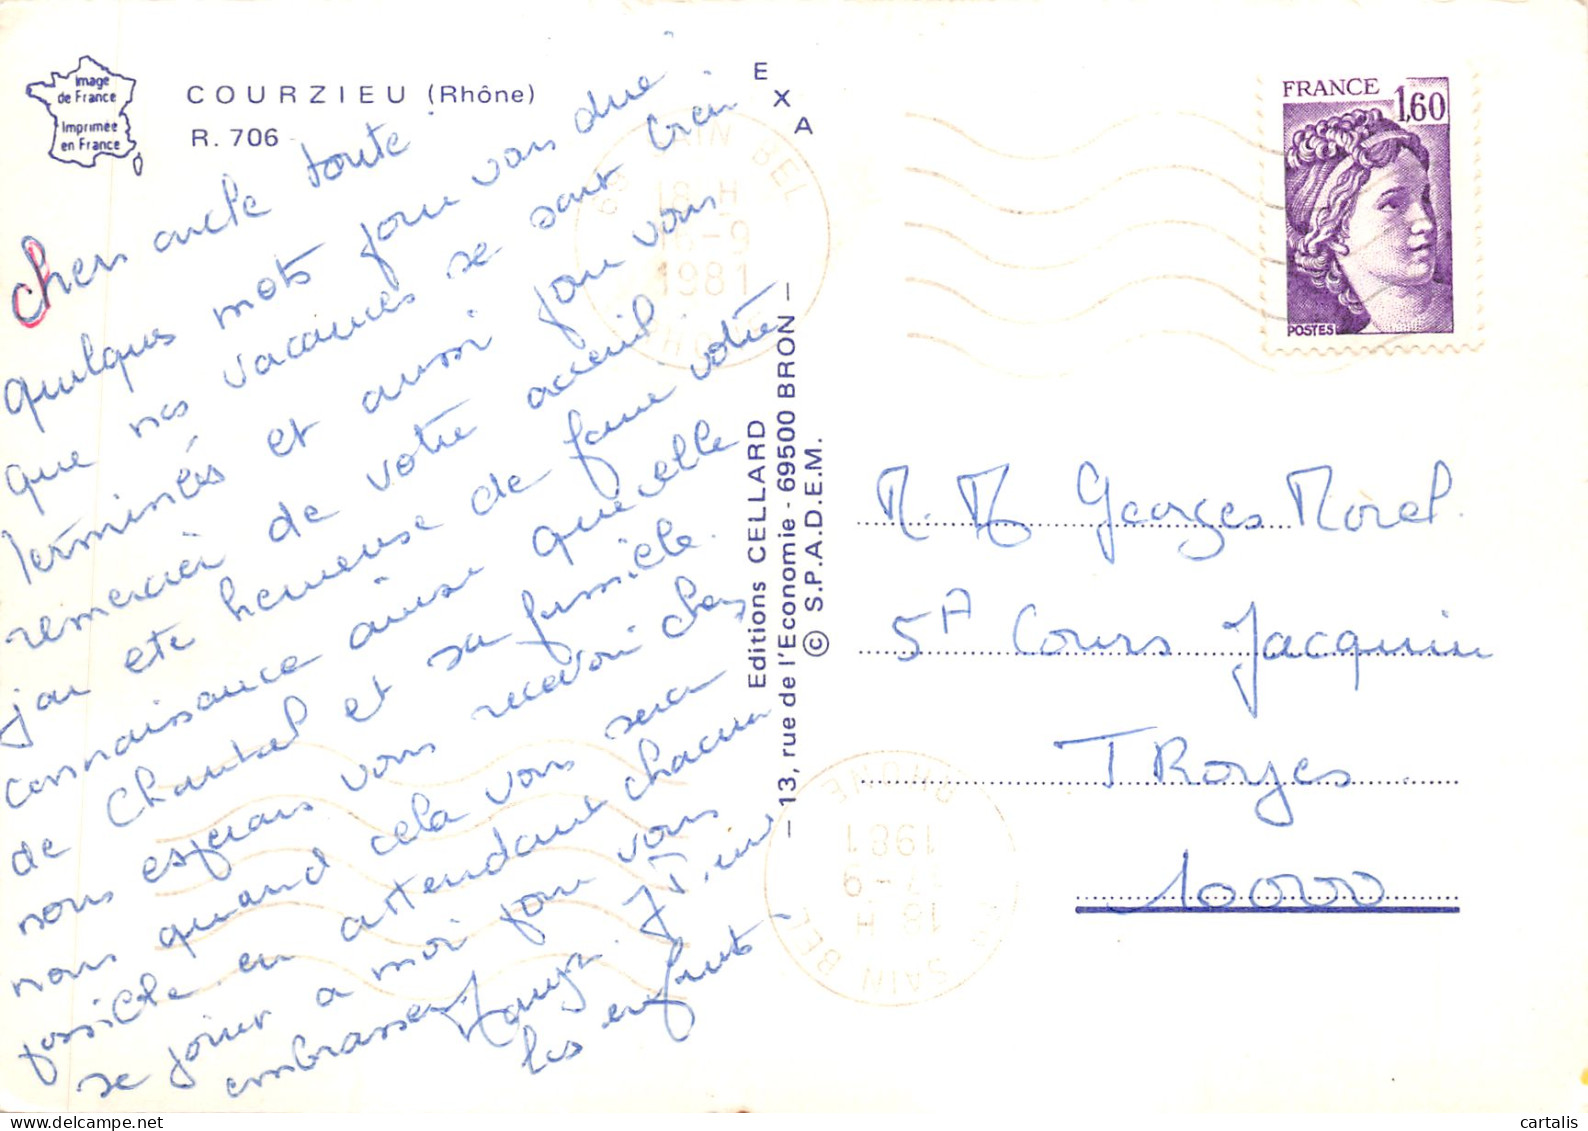 Image
de France
Imprimée
en France
COURZIEU (Rhône)
R. 706
EXA
chers oncle tante
quelques mots pour vous dire
que nos vacances se sont bien
terminées et aussi pour vous
remercier de votre accueil.
j'ai ete heureuse de faire votre
connaissance ainsi que celle
de Chantal et sa famille.
nous esperons vous recevoir chez
nous quand cela vous sera
possible en attendant chacun
se joint a moi pour vous
embrasser
les enfants
Editions CELLARD
— 13, rue de l'Economie - 69500 BRON —
© S.P.A.D.E.M.
SAIN BEL
18 H
16-9
1981
RHONE
FRANCE
1,60
POSTES
M. M Georges Morel.
5A Cours Jacquin
TRoyes
10000
SAIN BEL
18 H
17-9
1981
RHONE
cartalis
delcampe.net